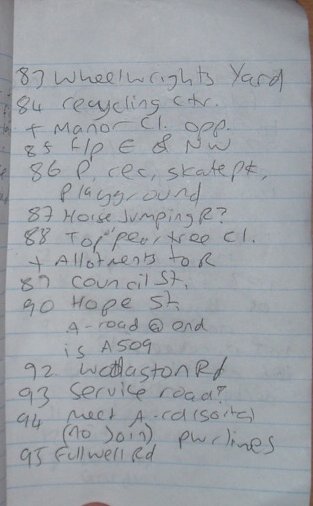 83 Wheelwrights Yard
84 recycling Ctr.
+ Manor Cl. opp.
85 f/p E & NW
86 P, rec, skate pk,
Playground
87 Horse Jumping R?
88 Top Peartree Cl.
+ Allotments to R
89 Council St.
90 Hope St.
A-road @ end
is A509
92 Wollaston Rd
93 Service road?
94 meet A-rd (sorta)
(no join) pwrlines
95 Fullwell Rd